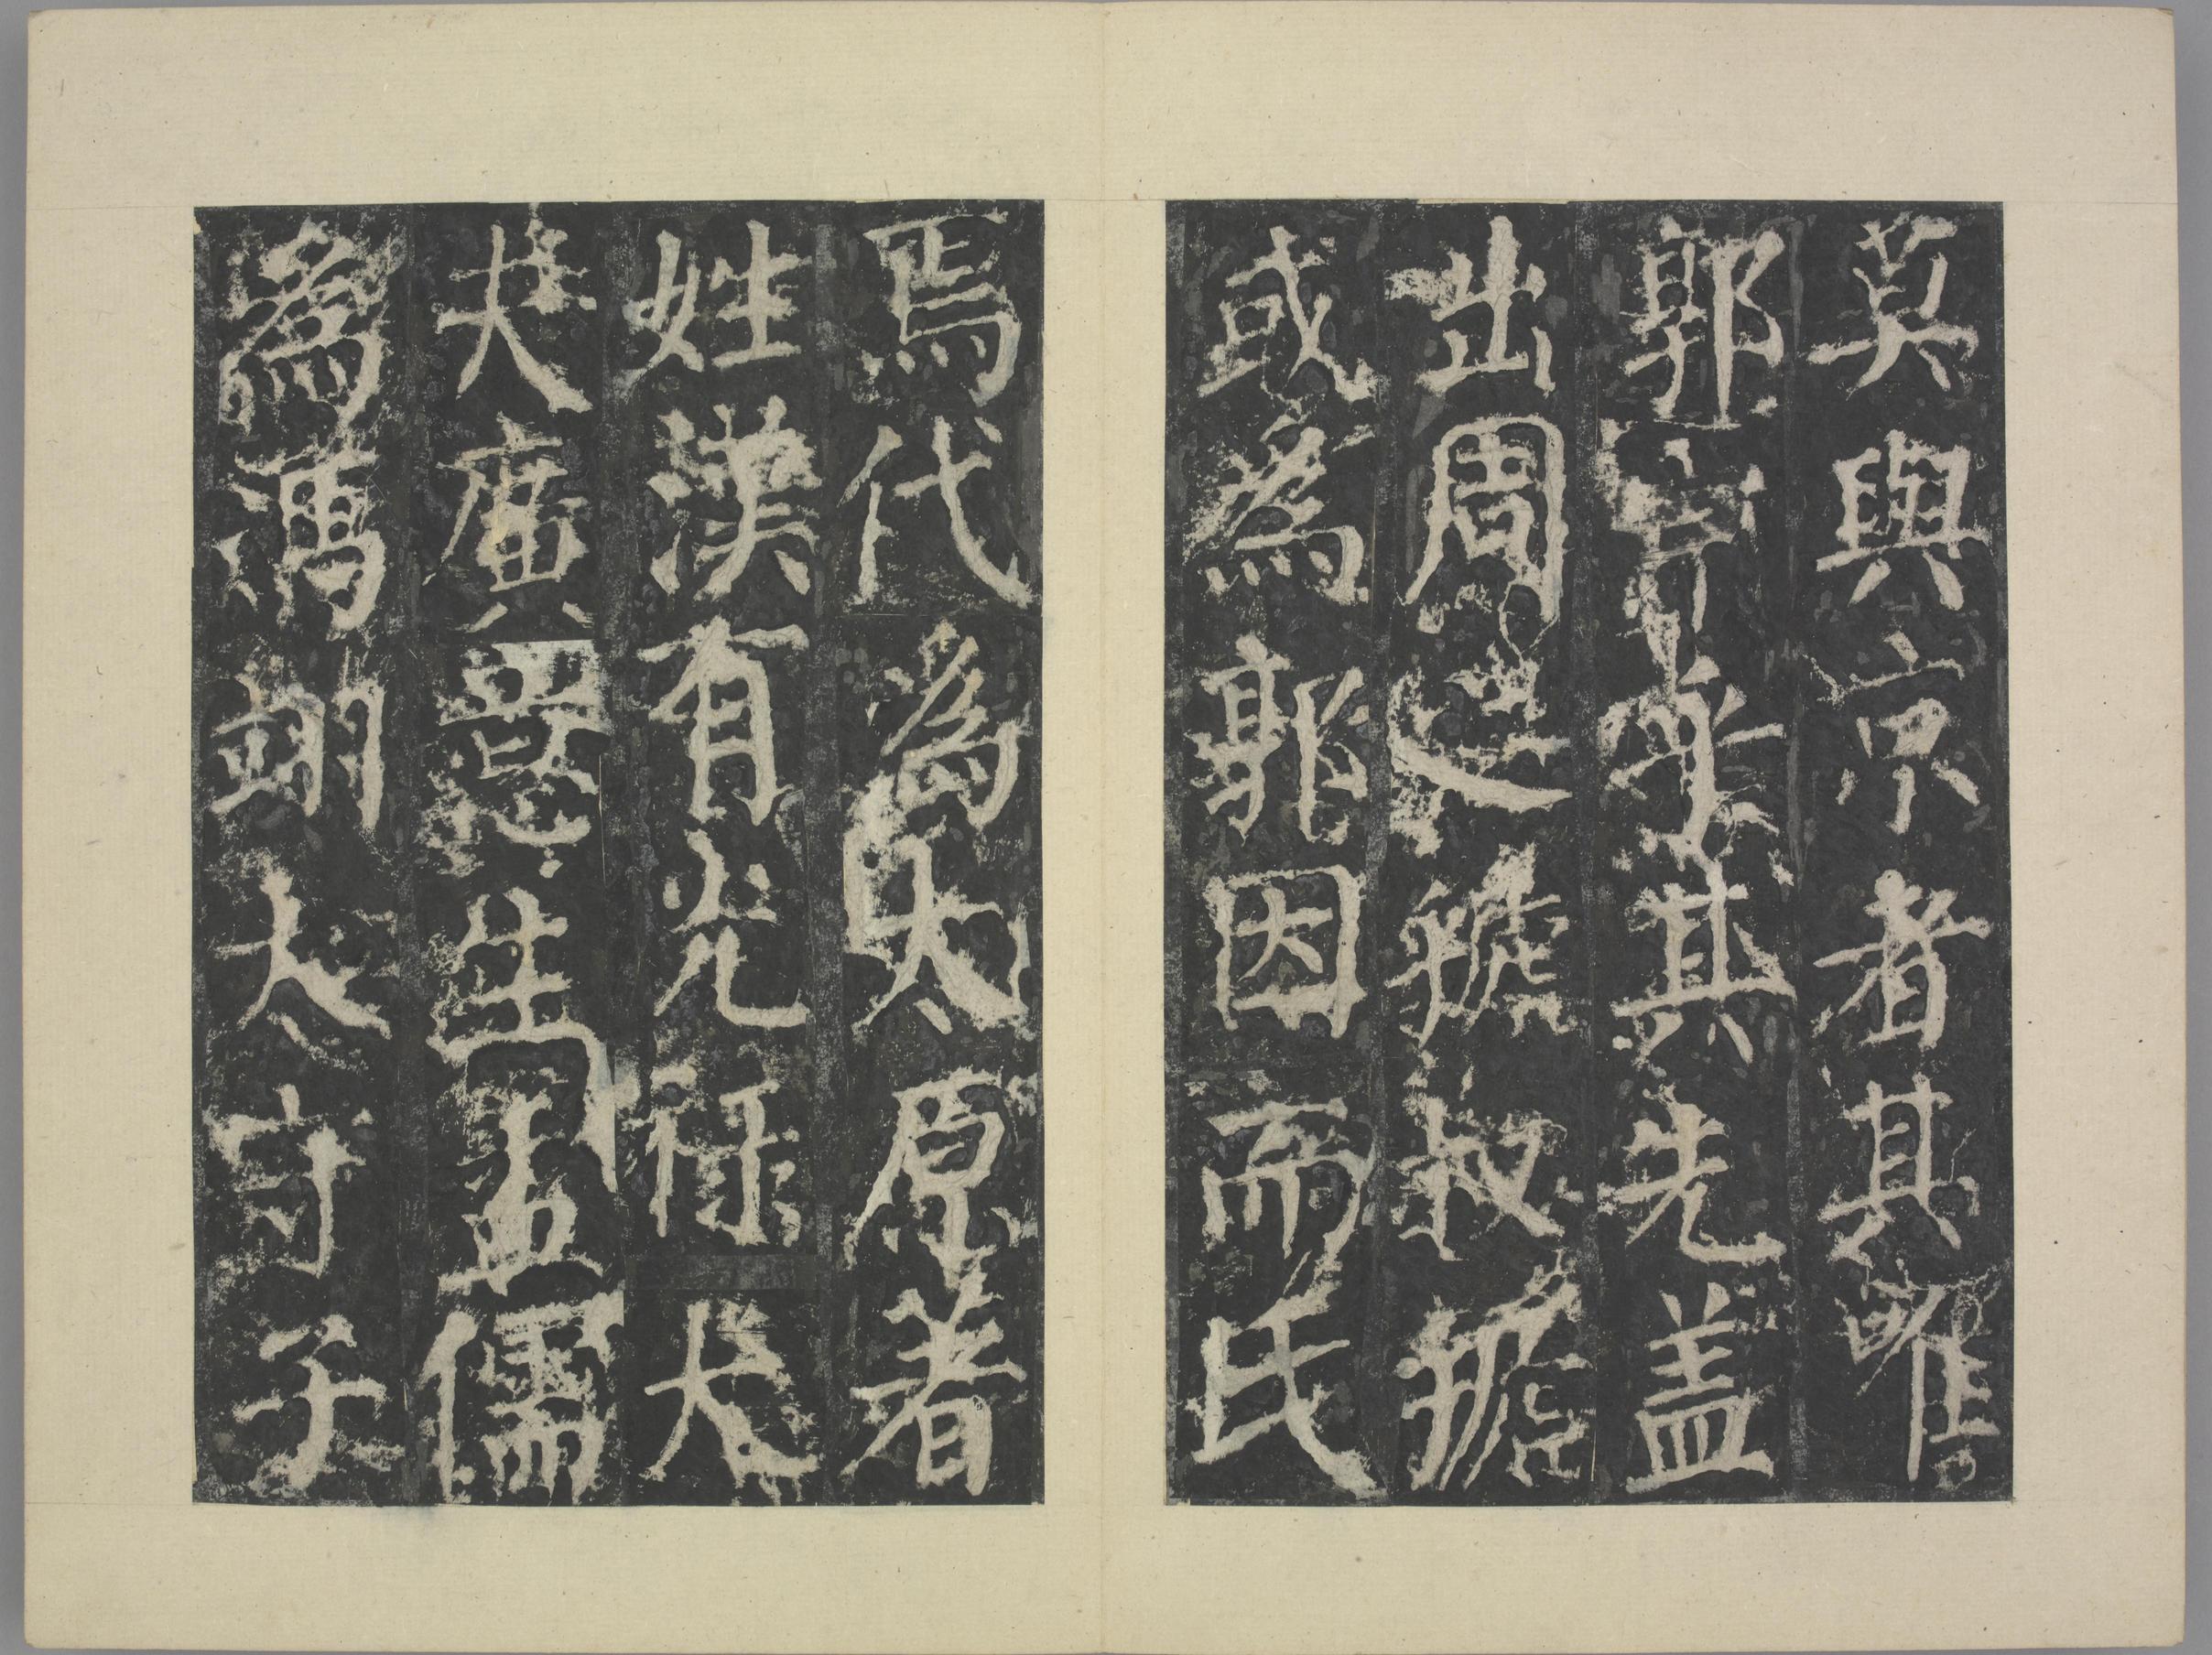 莫與京者其唯
郭宗乎其先盖
出周之虢叔虢
或為郭因而氏
焉代為太原著
姓漢有光祿大
夫廣意生孟儒
為馮翊太守子